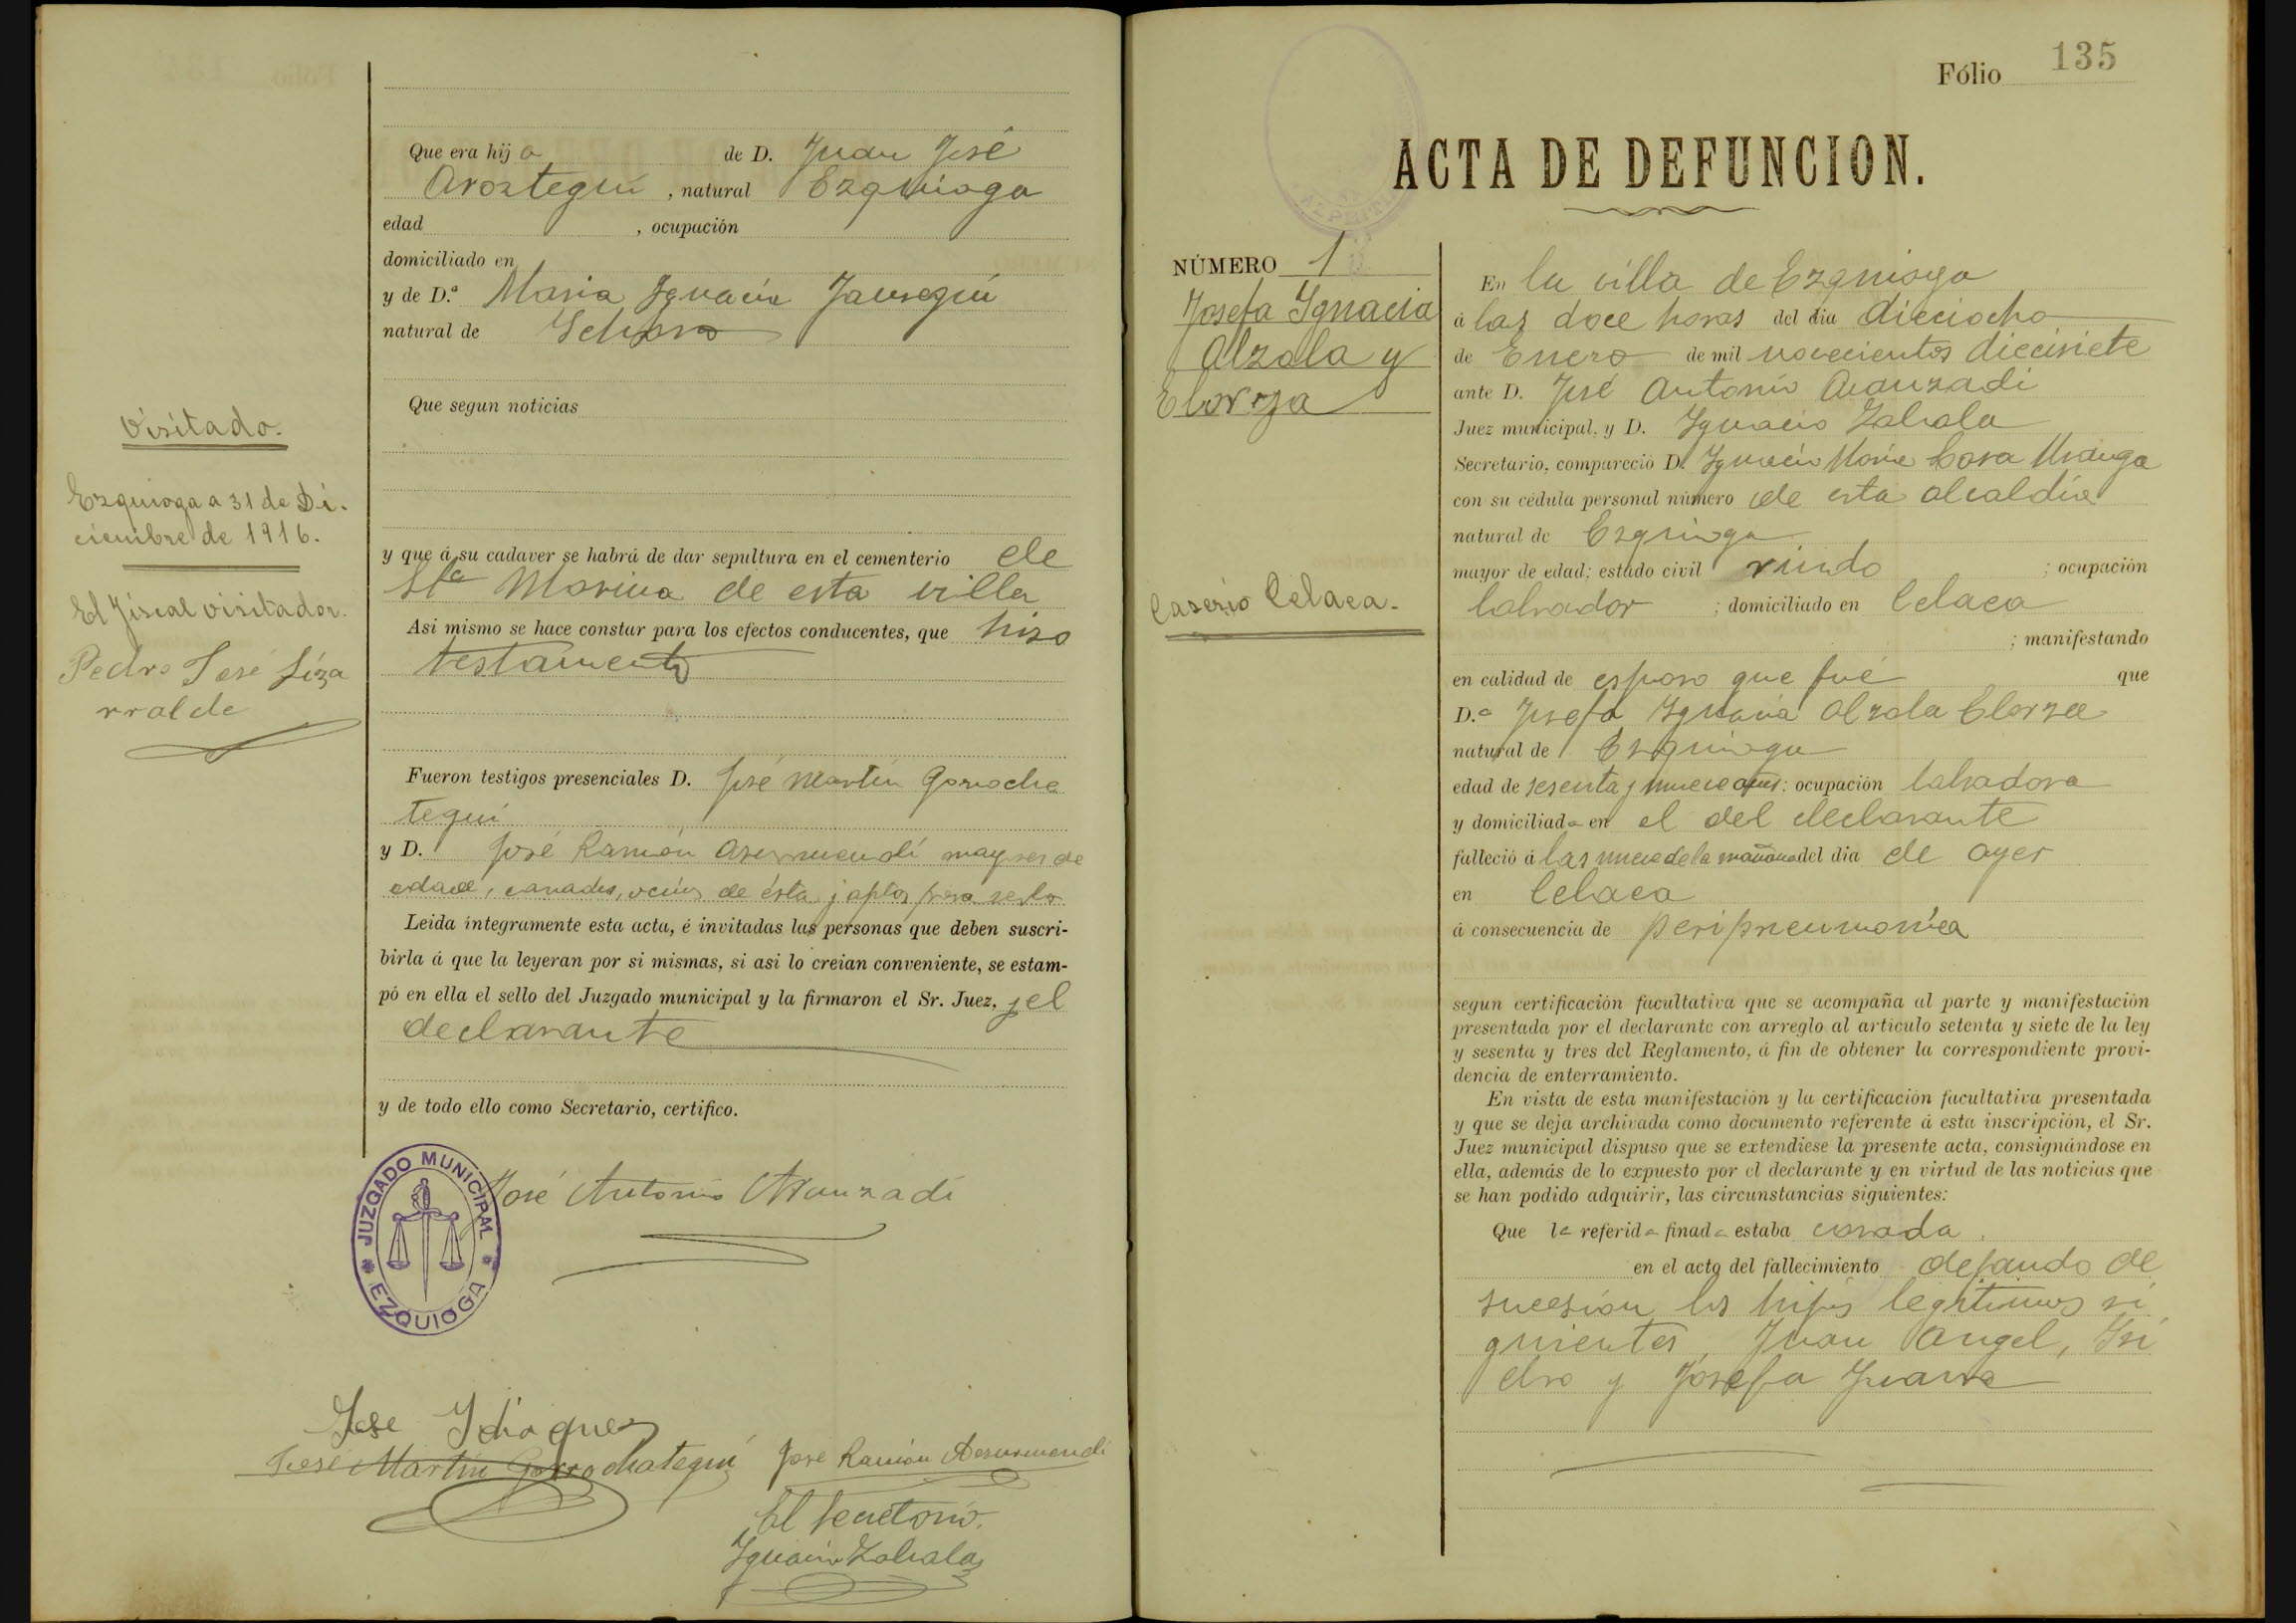 Que era hija de D. Juan José
Aroztegui, natural Ezquioga
edad , ocupación
domiciliado en
y de D.ª Maria Ignacia Jauregui
natural de Ichaso
Que segun noticias
Visitado.
Ezquioga a 31 de Di-
ciembre de 1916.
El Fiscal visitador.
Pedro José Liza
rralde
y que á su cadaver se habrá de dar sepultura en el cementerio de
Sta Marina de esta villa
Asi mismo se hace constar para los efectos conducentes, que hizo
testamento
Fueron testigos presenciales D. José Martín Gorrocha
tegui
y D. José Ramón Aseurmendi mayores de
edad, casados, vecinos de ésta y aptos para serlo
Leida íntegramente esta acta, é invitadas las personas que deben suscri-
birla á que la leyeran por si mismas, si asi lo creian conveniente, se estam-
pó en ella el sello del Juzgado municipal y la firmaron el Sr. Juez, y el
declarante
y de todo ello como Secretario, certifico.
JUZGADO MUNICIPAL
EZQUIOGA
José Antonio Aranzadi
Jose Idiaquez
José Martín Gorrochategui
José Ramón
El Secretario.
Ignacio Zabala
Fólio 135
ACTA DE DEFUNCION.
NÚMERO 1
Josefa Ignacia
Alzola y
Elorza
Caserio Celaea.
En la villa de Ezquioga
á las doce horas del dia dieciocho
de Enero de mil novecientos diecisiete
ante D. José Antonio Aranzadi
Juez municipal, y D. Ignacio Zabala
Secretario, compareció D. Ignacio María
con su cédula personal número de esta alcaldía
natural de Ezquioga
mayor de edad; estado civil viudo ; ocupación
labrador ; domiciliado en Celaea
; manifestando
en calidad de esposo que fué que
D.ª Josefa Ignacia Alzola Elorza
natural de Ezquioga
edad de sesenta y nueve años; ocupación labradora
y domiciliada en el del declarante
falleció á las nueve de la mañana del dia de ayer
en Celaea
á consecuencia de peripneumonía
segun certificación facultativa que se acompaña al parte y manifestación
presentada por el declarante con arreglo al artículo setenta y siete de la ley
y sesenta y tres del Reglamento, á fin de obtener la correspondiente provi-
dencia de enterramiento.
En vista de esta manifestación y la certificación facultativa presentada
y que se deja archivada como documento referente á esta inscripción, el Sr.
Juez municipal dispuso que se extendiese la presente acta, consignándose en
ella, además de lo expuesto por el declarante y en virtud de las noticias que
se han podido adquirir, las circunstancias siguientes:
Que la referida finada estaba casada
en el acto del fallecimiento dejando de
sucesión los hijos legítimos si
guientes, Juan Angel, Isi
dro y Josefa Juana